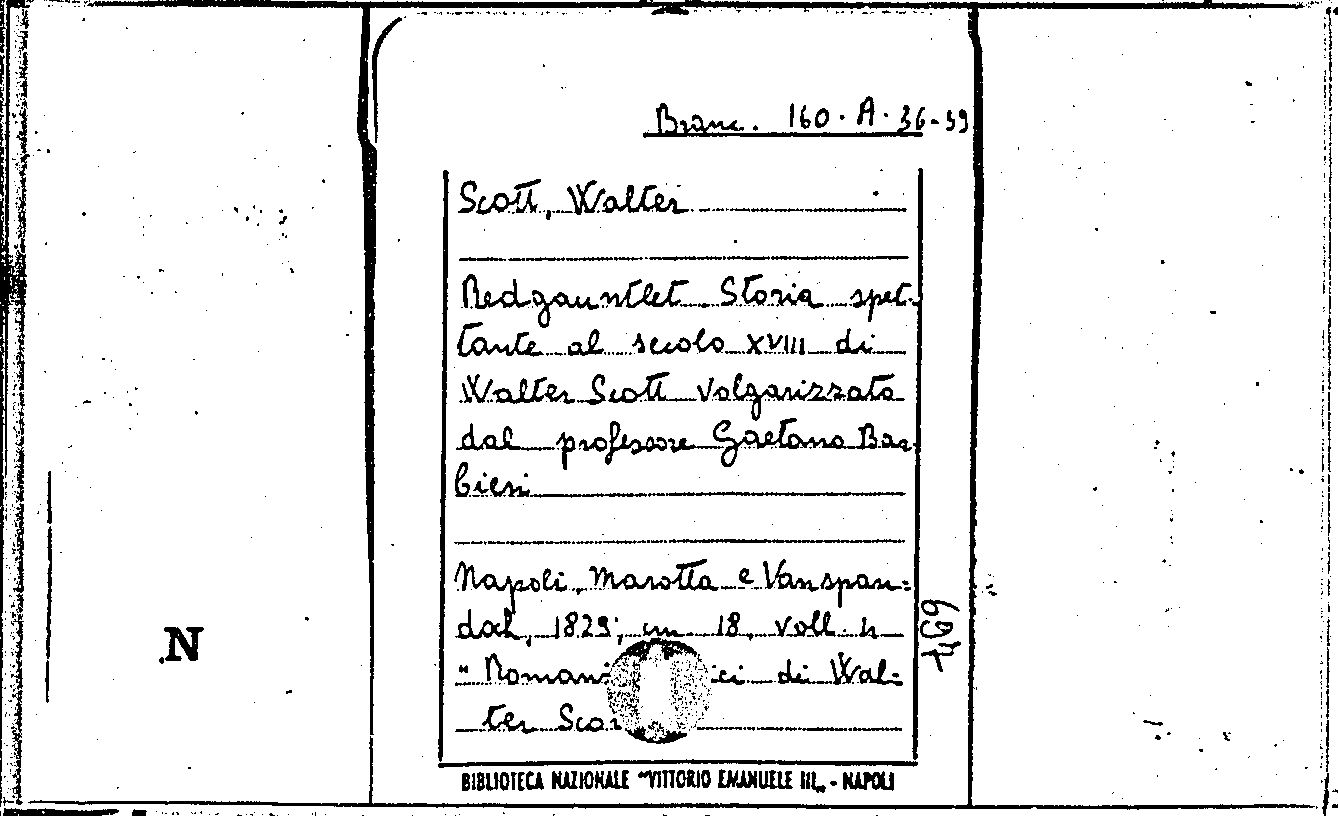 Branc. 160. A. 36-39
Scott, Walter
Redgauntlet Storia spet-
tante al secolo XVIII di
Walter Scott volgarizzata
dal professore Gaetano Bar-
bieri
Napoli, Marotta e Vanspan=
doch, 1829; in 18, voll. 4
" Romanzi ci di Wal=
ter Scott
BIBLIOTECA NAZIONALE "VITTORIO EMANUELE III„ - NAPOLI
N